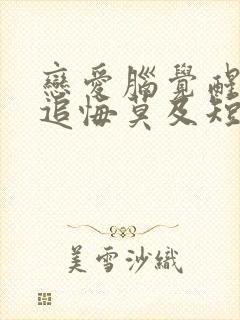 戀愛腦覺醒
追悔莫及短
美雪沙織